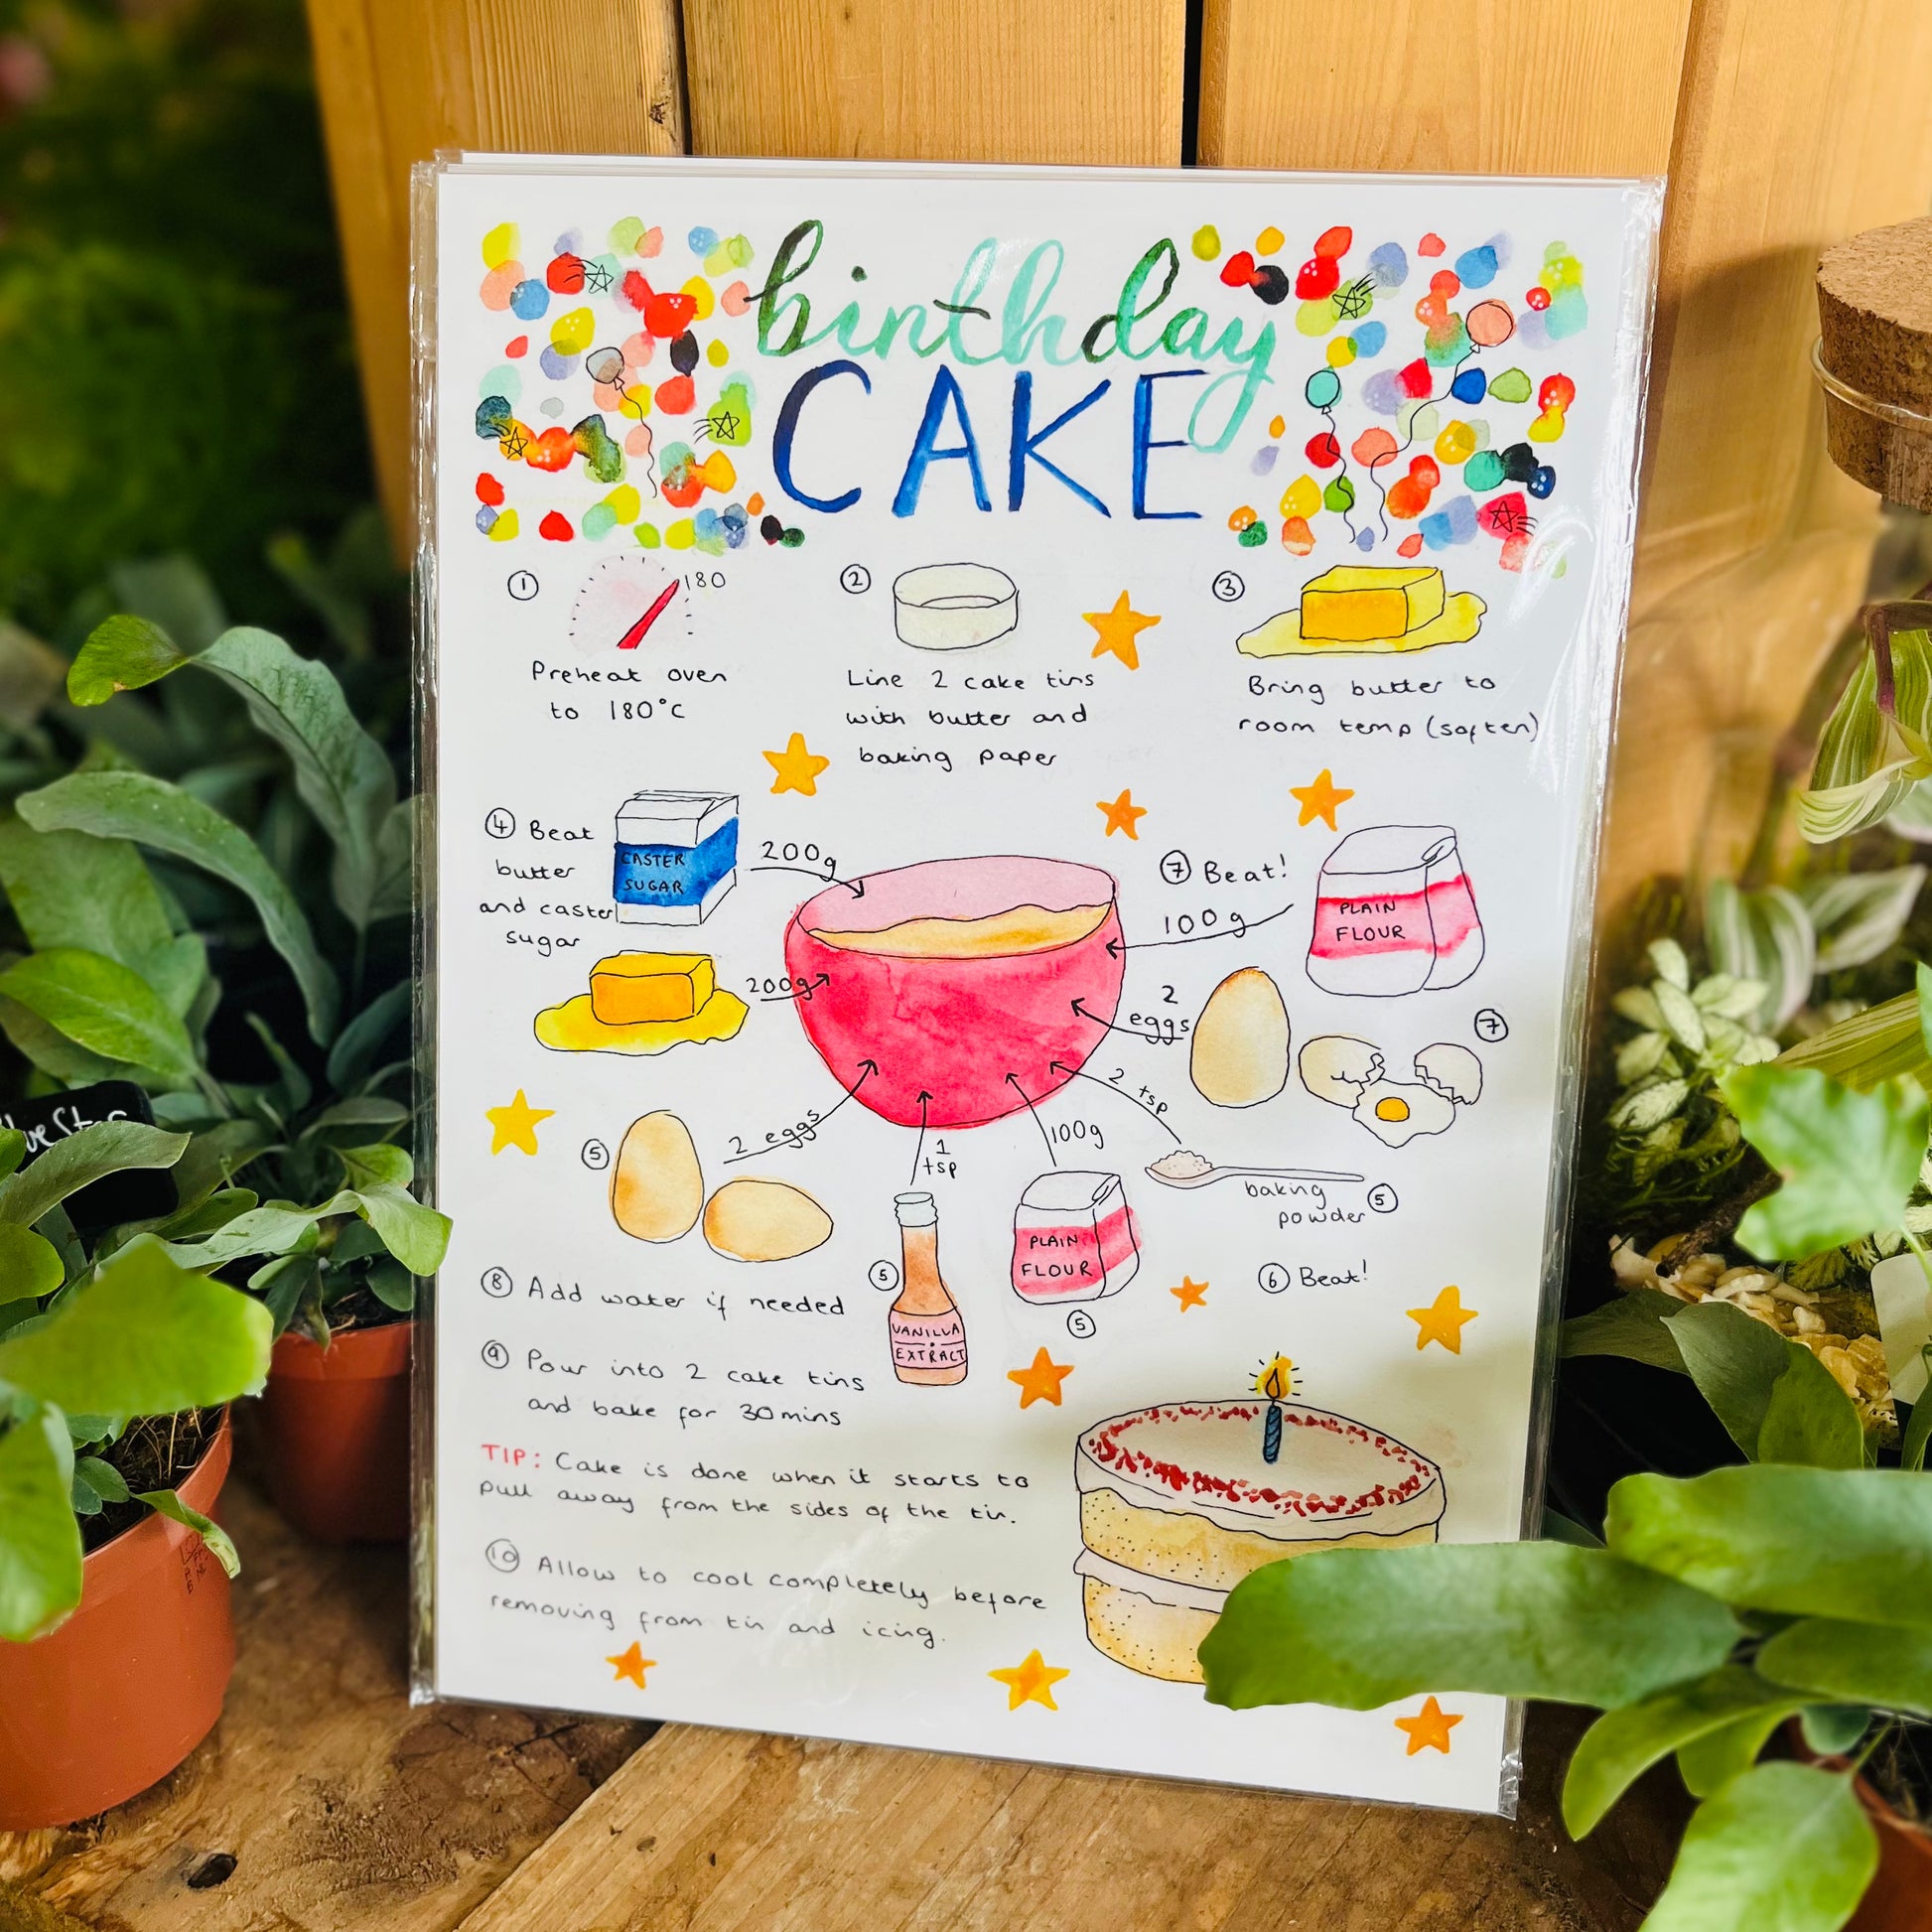 birthday
CAKE
① 180
Preheat oven
to 180°C
②
Line 2 cake tins
with butter and
baking paper
③
Bring butter to
room temp (soften)
④ Beat
butter
and caster
sugar
CASTER
SUGAR
200g
200g
⑤
2 eggs
1
tsp
⑤
VANILLA
EXTRACT
100g
PLAIN
FLOUR
⑤
2 tsp
baking
powder ⑤
⑥ Beat!
⑦ Beat!
100g
PLAIN
FLOUR
2
eggs
⑦
⑧ Add water if needed
⑨ Pour into 2 cake tins
and bake for 30mins
TIP: Cake is done when it starts to
pull away from the sides of the tin.
⑩ Allow to cool completely before
removing from tin and icing.